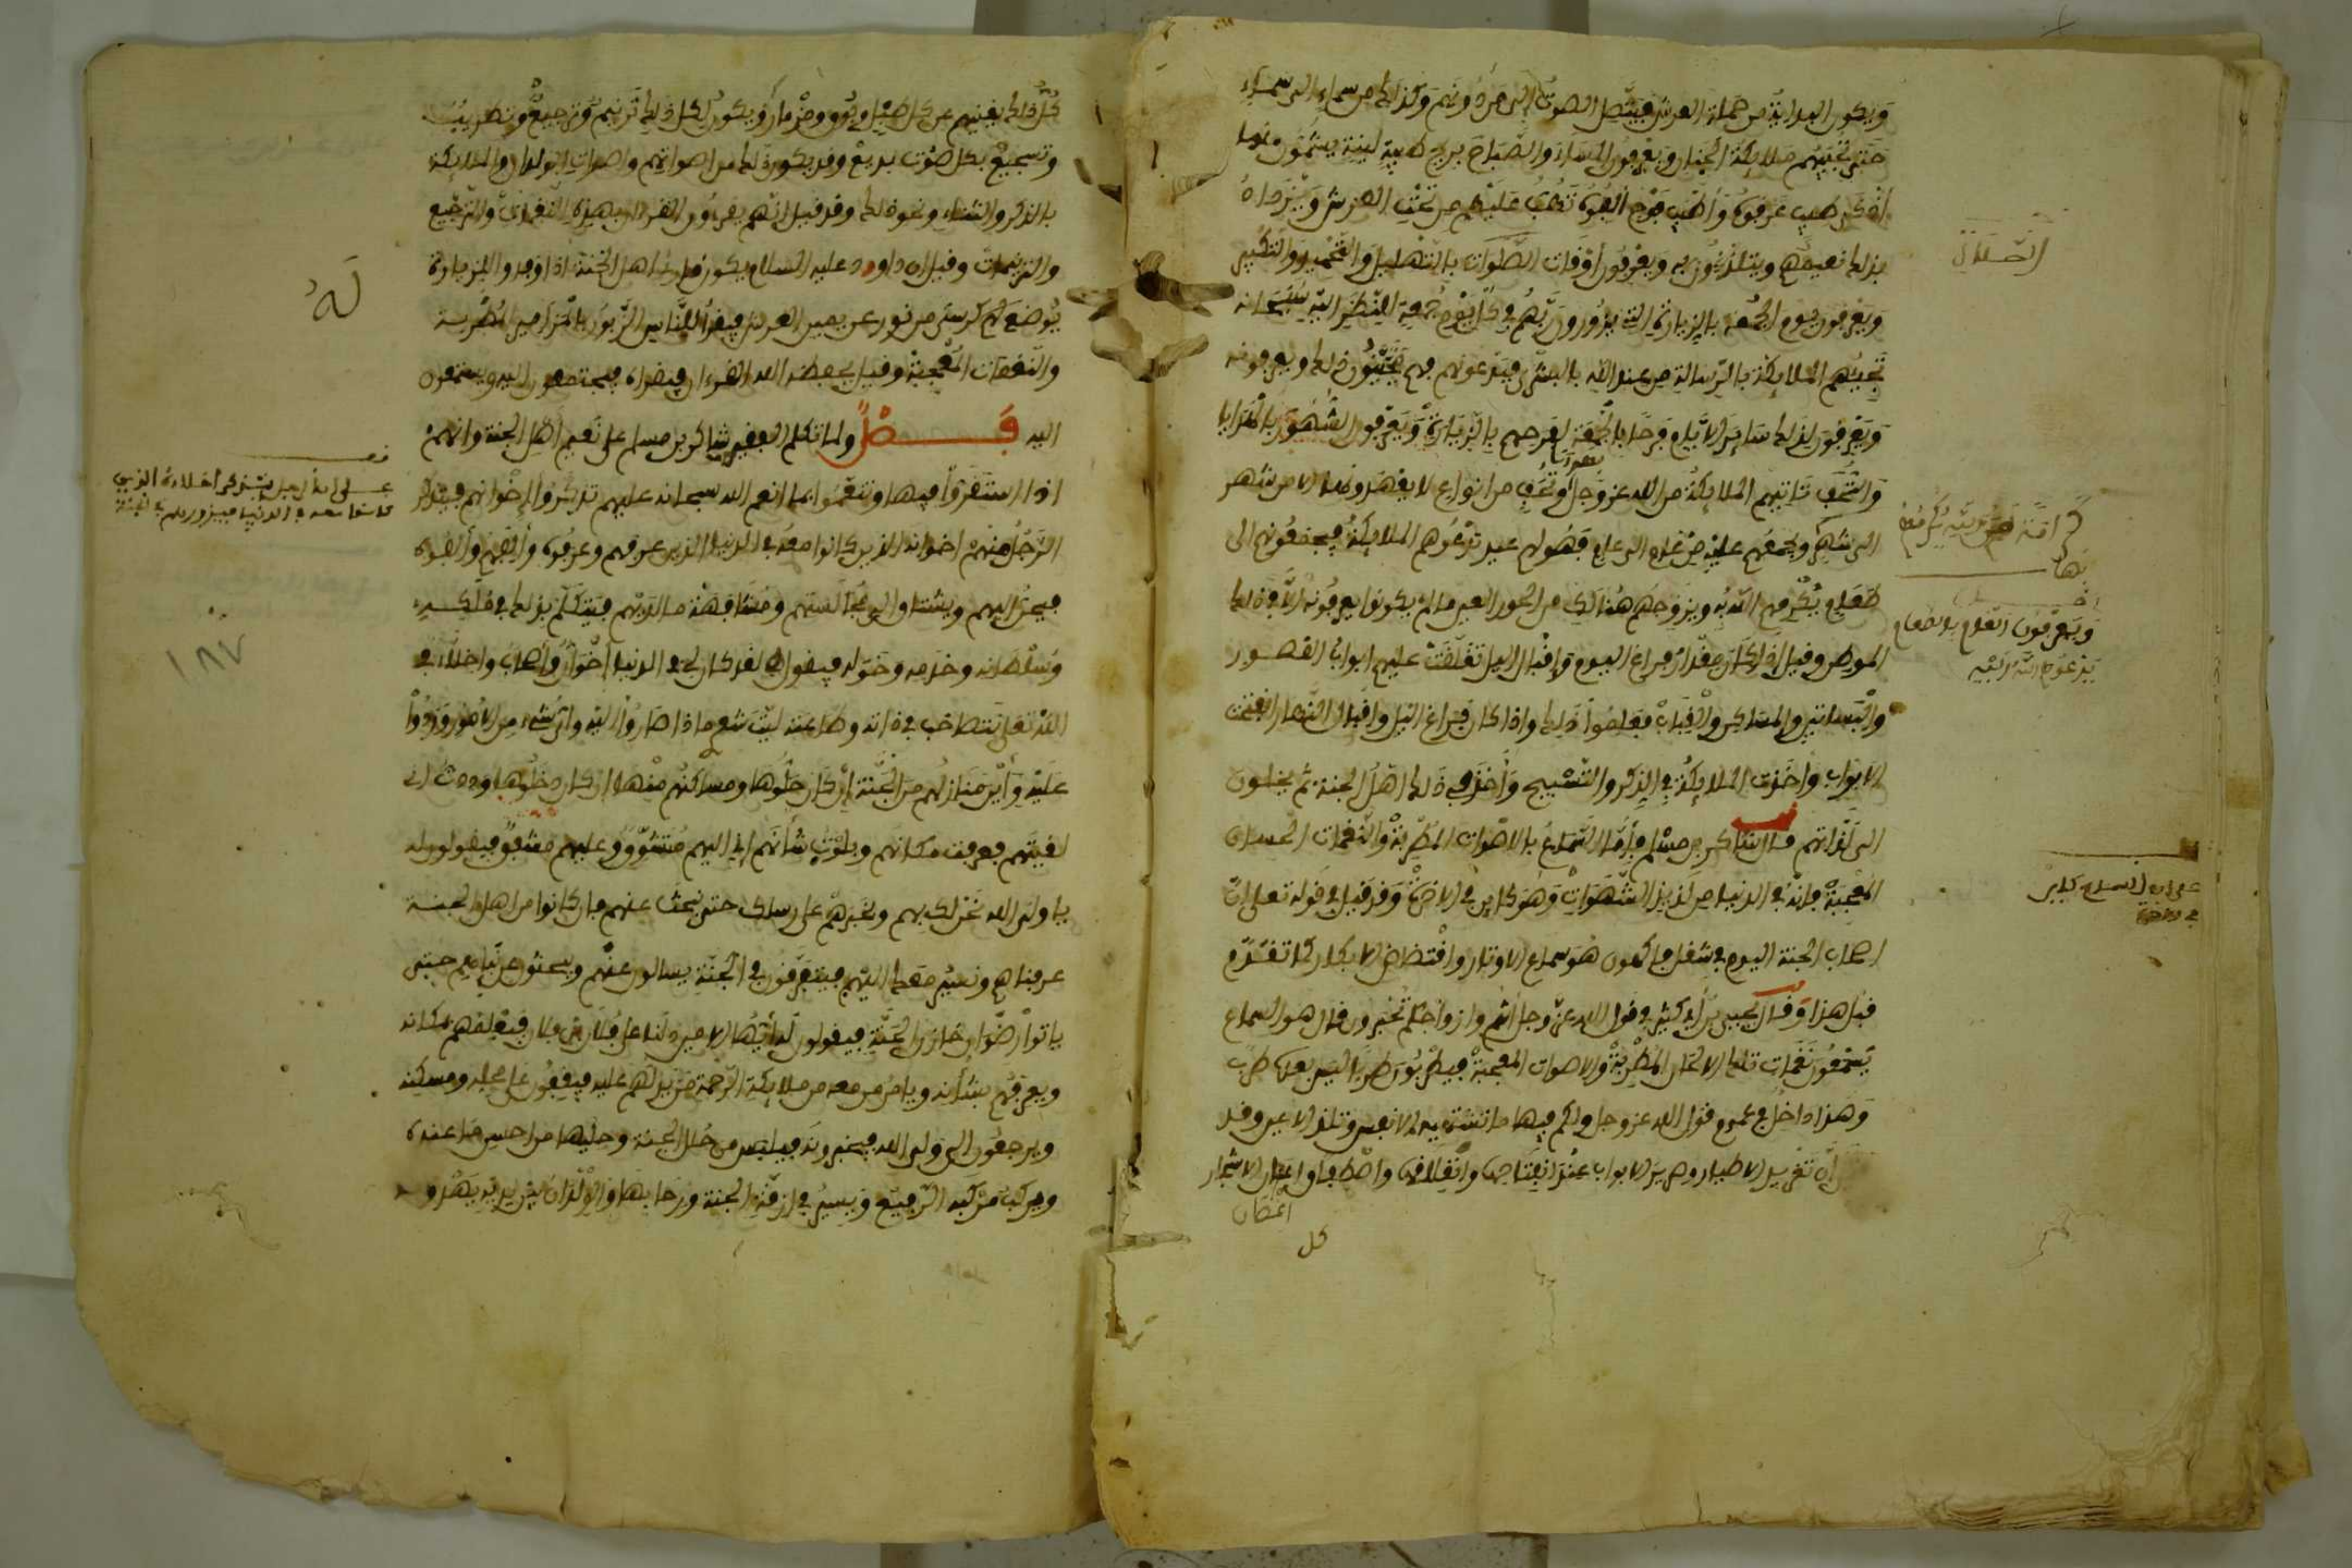 وَيكون البداية من حملة العرش فيتصل الصوت إلى من دونهم وكذلك من سماء إلى سماء
حتى تجيبهم ملائكة الجنان ويعرفون المساء والصباح بريح طيبة لينة يشمون منها
أذكى طيب عرفوه وأطيب ألفوه تهب عليهم من تحت العرش ويزداد
بذلك نعيمهم ويتلذذون به ويعرفون أوقات الصلوات بالتهليل والتحميد والتكبير
ويعرفون يوم الجمعة بالزيارة التي يزورون ربهم في كل يوم جمعة للنظر إليه سبحانه
تجيئهم الملائكة بالرسالة من عند الله بالبشرى فيدعونهم فهم يحبون ذلك ويعرفونه
ويعرفون لذلك سائر الأيام فرحا بالجمعة لفرحهم بالزيارة ويعرفون الشهور بالهدايا
والتحف تاتيهم الملائكة من الله عز وجل وتحف من أنواع لا يعهدونها إلا من شهر
إلى شهر ويجمعهم عليه من عام إلى عام فهو لهم عيد تدعوهم الملائكة فيجمعونهم إلى
طعام يكرمهم الله به ويزوجهم هنالك من الحور العين ما لم يكونوا يعرفونه إلا في ذلك
الموطن وقيل إذا كان مقدار فراغ اليوم وإقبال الليل تغلقت عليهم أبواب القصور
والبساتين والمساكن والقباب فعلموا ذلك وإذا كان فراغ الليل وإقبال النهار انفتحت
الأبواب وأخذت الملائكة في الذكر والتسبيح وأخذ في ذلك أهل الجنة ثم يخلون
إلى لذاتهم قال الشاكر بن مسلم فأما السماع بالأصوات المطربة والنغمات الحسان
المعجبة فإنه في الدنيا من لذيذ الشهوات وهو كاين في الآخرة وقد قيل في قوله تعلى إن
أصحاب الجنة اليوم في شغل فاكهون هو سماع الأوتار وافتضاض الأبكار كما تقدم
قبل هذا وقال يحيى بن أبي كثير في قول الله عز وجل أنتم وأزواجكم تحبرون قال هو السماع
يسمعون نغمات تلك الألحان المطربة والأصوات المعجبة فيطربون طربا ليس بعده طرب
وهذا داخل في عموم قول الله عز وجل ولكم فيها ما تشتهيه الأنفس وتلذ الأعين وقد
أن تغريد الأطيار وصرير الأبواب عند انفتاحها وانغلاقها واصطفاق أغصان الأشجار
أغصان
كل
الصلاة
ويعرفون العام بالطعام
يدعوهم الله إليه
على أن السماع كاين
في الآخرة
كل ذلك يغنيهم عن كل طبل وعود ومزمار ويكون لكل ذلك ترنيم وترجيع وتطريب
وتسجيع بكل صوت بديع وقد يكون ذلك من أصواتهم وأصوات الولدان والملائكة
بالذكر والثناء ونحو ذلك وقد قيل أنهم يقرءون القرءان بهذه النغمات والترجيع
والترنيمات وقيل أن داوود عليه السلام يكون قارئ أهل الجنة إذا وفدوا للزيارة
يوضع لهم كرسي من نور عن يمين العرش فيقرأ للناس الزبور بالمزامير المطربة
والنغمات المعجبة وقيل يحفظه الله القرءان فيقراه فيجتمعون إليه ويستمعون
إليه فصل ولما تكلم الفقيه شاكر بن مسلم على نعيم أهل الجنة وأنهم
إذا استقروا فيها وتنعموا بما أنعم الله سبحانه عليهم تذكروا إخوانهم فيتذكر
الرجل منهم إخوانه الذين كانوا معه في الدنيا الذين عرفهم وعرفوه وألفهم وألفوه
فيحن إليهم ويشتاق إلى مجالستهم ومشافهة ما لديهم فيتكلم بذلك في ملكه
وسلطانه وخدمه وخوله فيقول لهم لقد كان لي في الدنيا إخوان وأصحاب وأخلاء في
الله تعلى نتصاحب في ذاته وطاعته ليت شعري ما ذا صاروا إليه وأي شيء من الأمور وردوا
عليه وأين منازلهم من الجنة إن كان حلوها ومساكنهم منها إن كان دخلوها ووددت أني
لقيتهم فعرفت مكانهم شأنهم إني إليهم متشوق وعليهم مشفق فيقولون له
يا ولي الله نحن لك بهم ونخبرهم على رسلك حتى نبحث عنهم فإن كانوا من أهل الجنة
عرفناهم ونسير معك إليهم فيتفرقون في الجنة يسألون عنهم ويبحثون عن نبإهم حتى
ياتوا رضوان خازن الجنة فيقولون له أيها الأمير دلنا على فلان بن فلان فيعلمهم بمكانه
ويعرفهم بشأنه ويأمر من معه من ملائكة الرحمة من يدلهم عليه فيقفون على محله ومسكنه
ويرجعون إلى ولي الله فيخبرونه فيلبس من حلل الجنة وحليها من أحسن ما عنده
ويركب مركبه الرفيع ويسير في أزقة الجنة ورحابها والولدان بين يديه يهرو
له
على أن الرجل يتذكر أخلاءه الذين
كانوا معه في الدنيا فيزورهم في الجنة
١٨٧